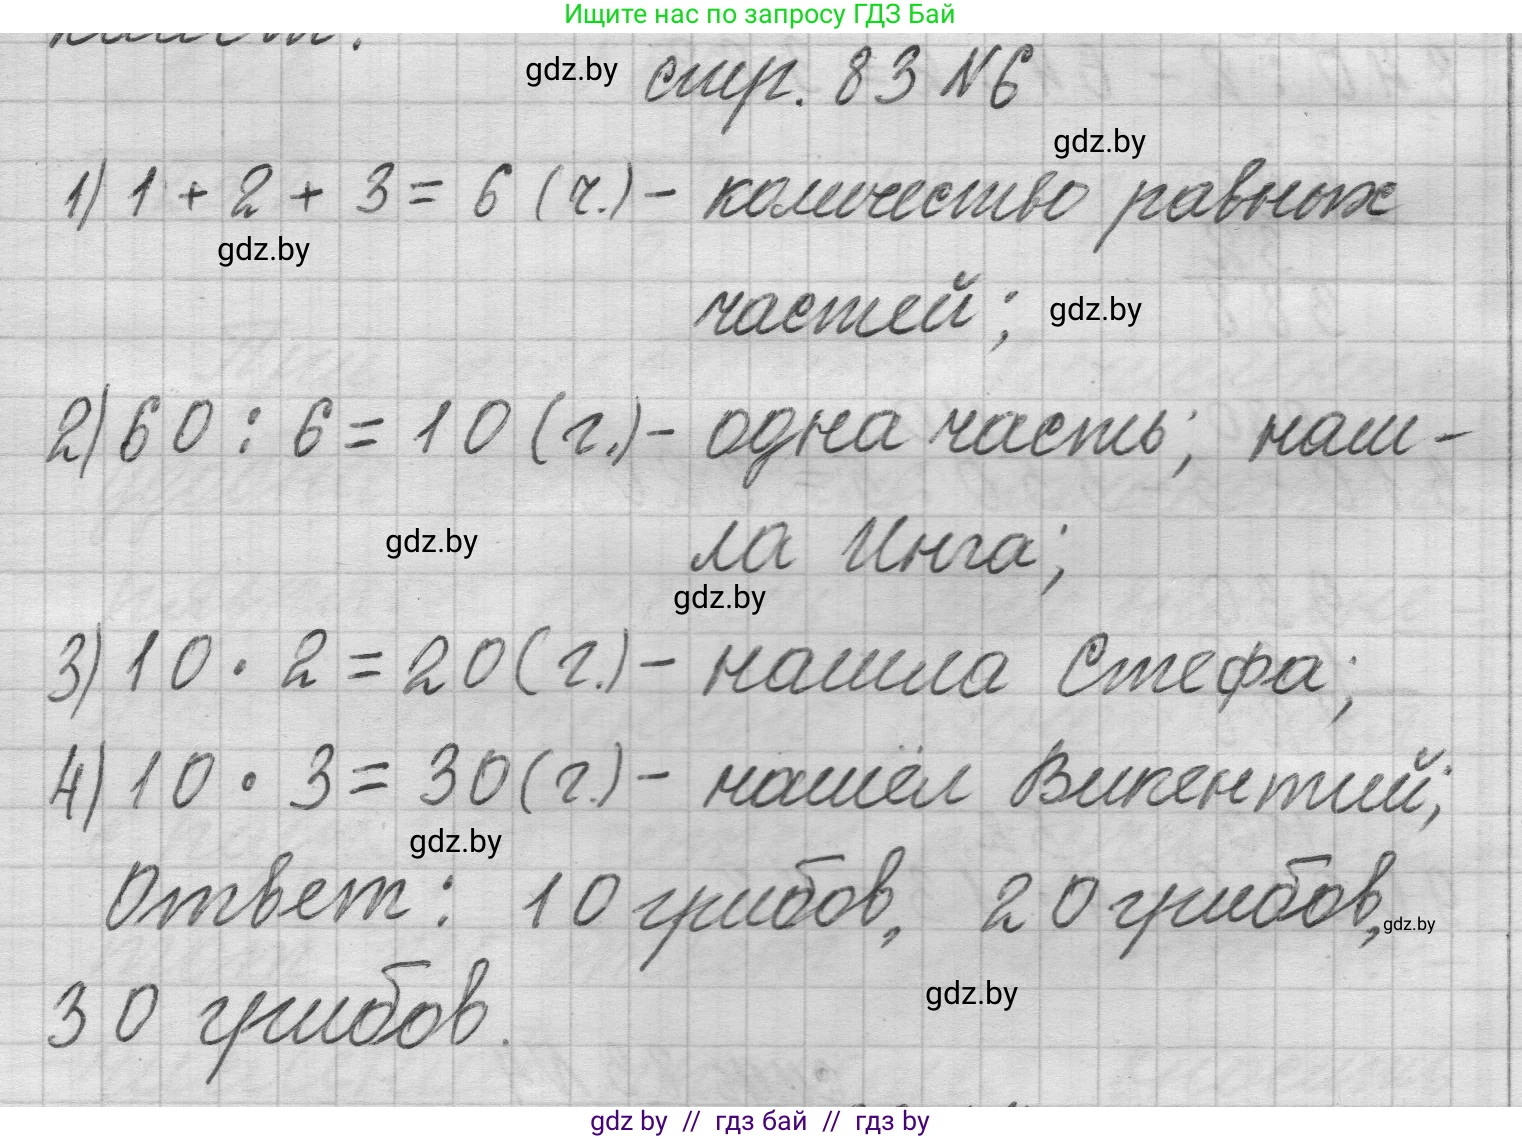 Ищите нас по запросу ГДЗ Бай
gdz.by
стр. 83 №6
gdz.by
1) 1 + 2 + 3 = 6 (ч.) - количество равных
gdz.by
частей;
gdz.by
2) 60 : 6 = 10 (г.) - одна часть; наш-
gdz.by
ла Инга;
gdz.by
3) 10 · 2 = 20 (г.) - нашла Стефа;
4) 10 · 3 = 30 (г.) - нашёл Викентий;
gdz.by
Ответ: 10 грибов, 20 грибов,
gdz.by
gdz.by
30 грибов.
gdz by // гдз бай // гдз by